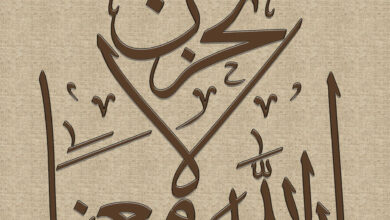 لا تحزن
الله معنا